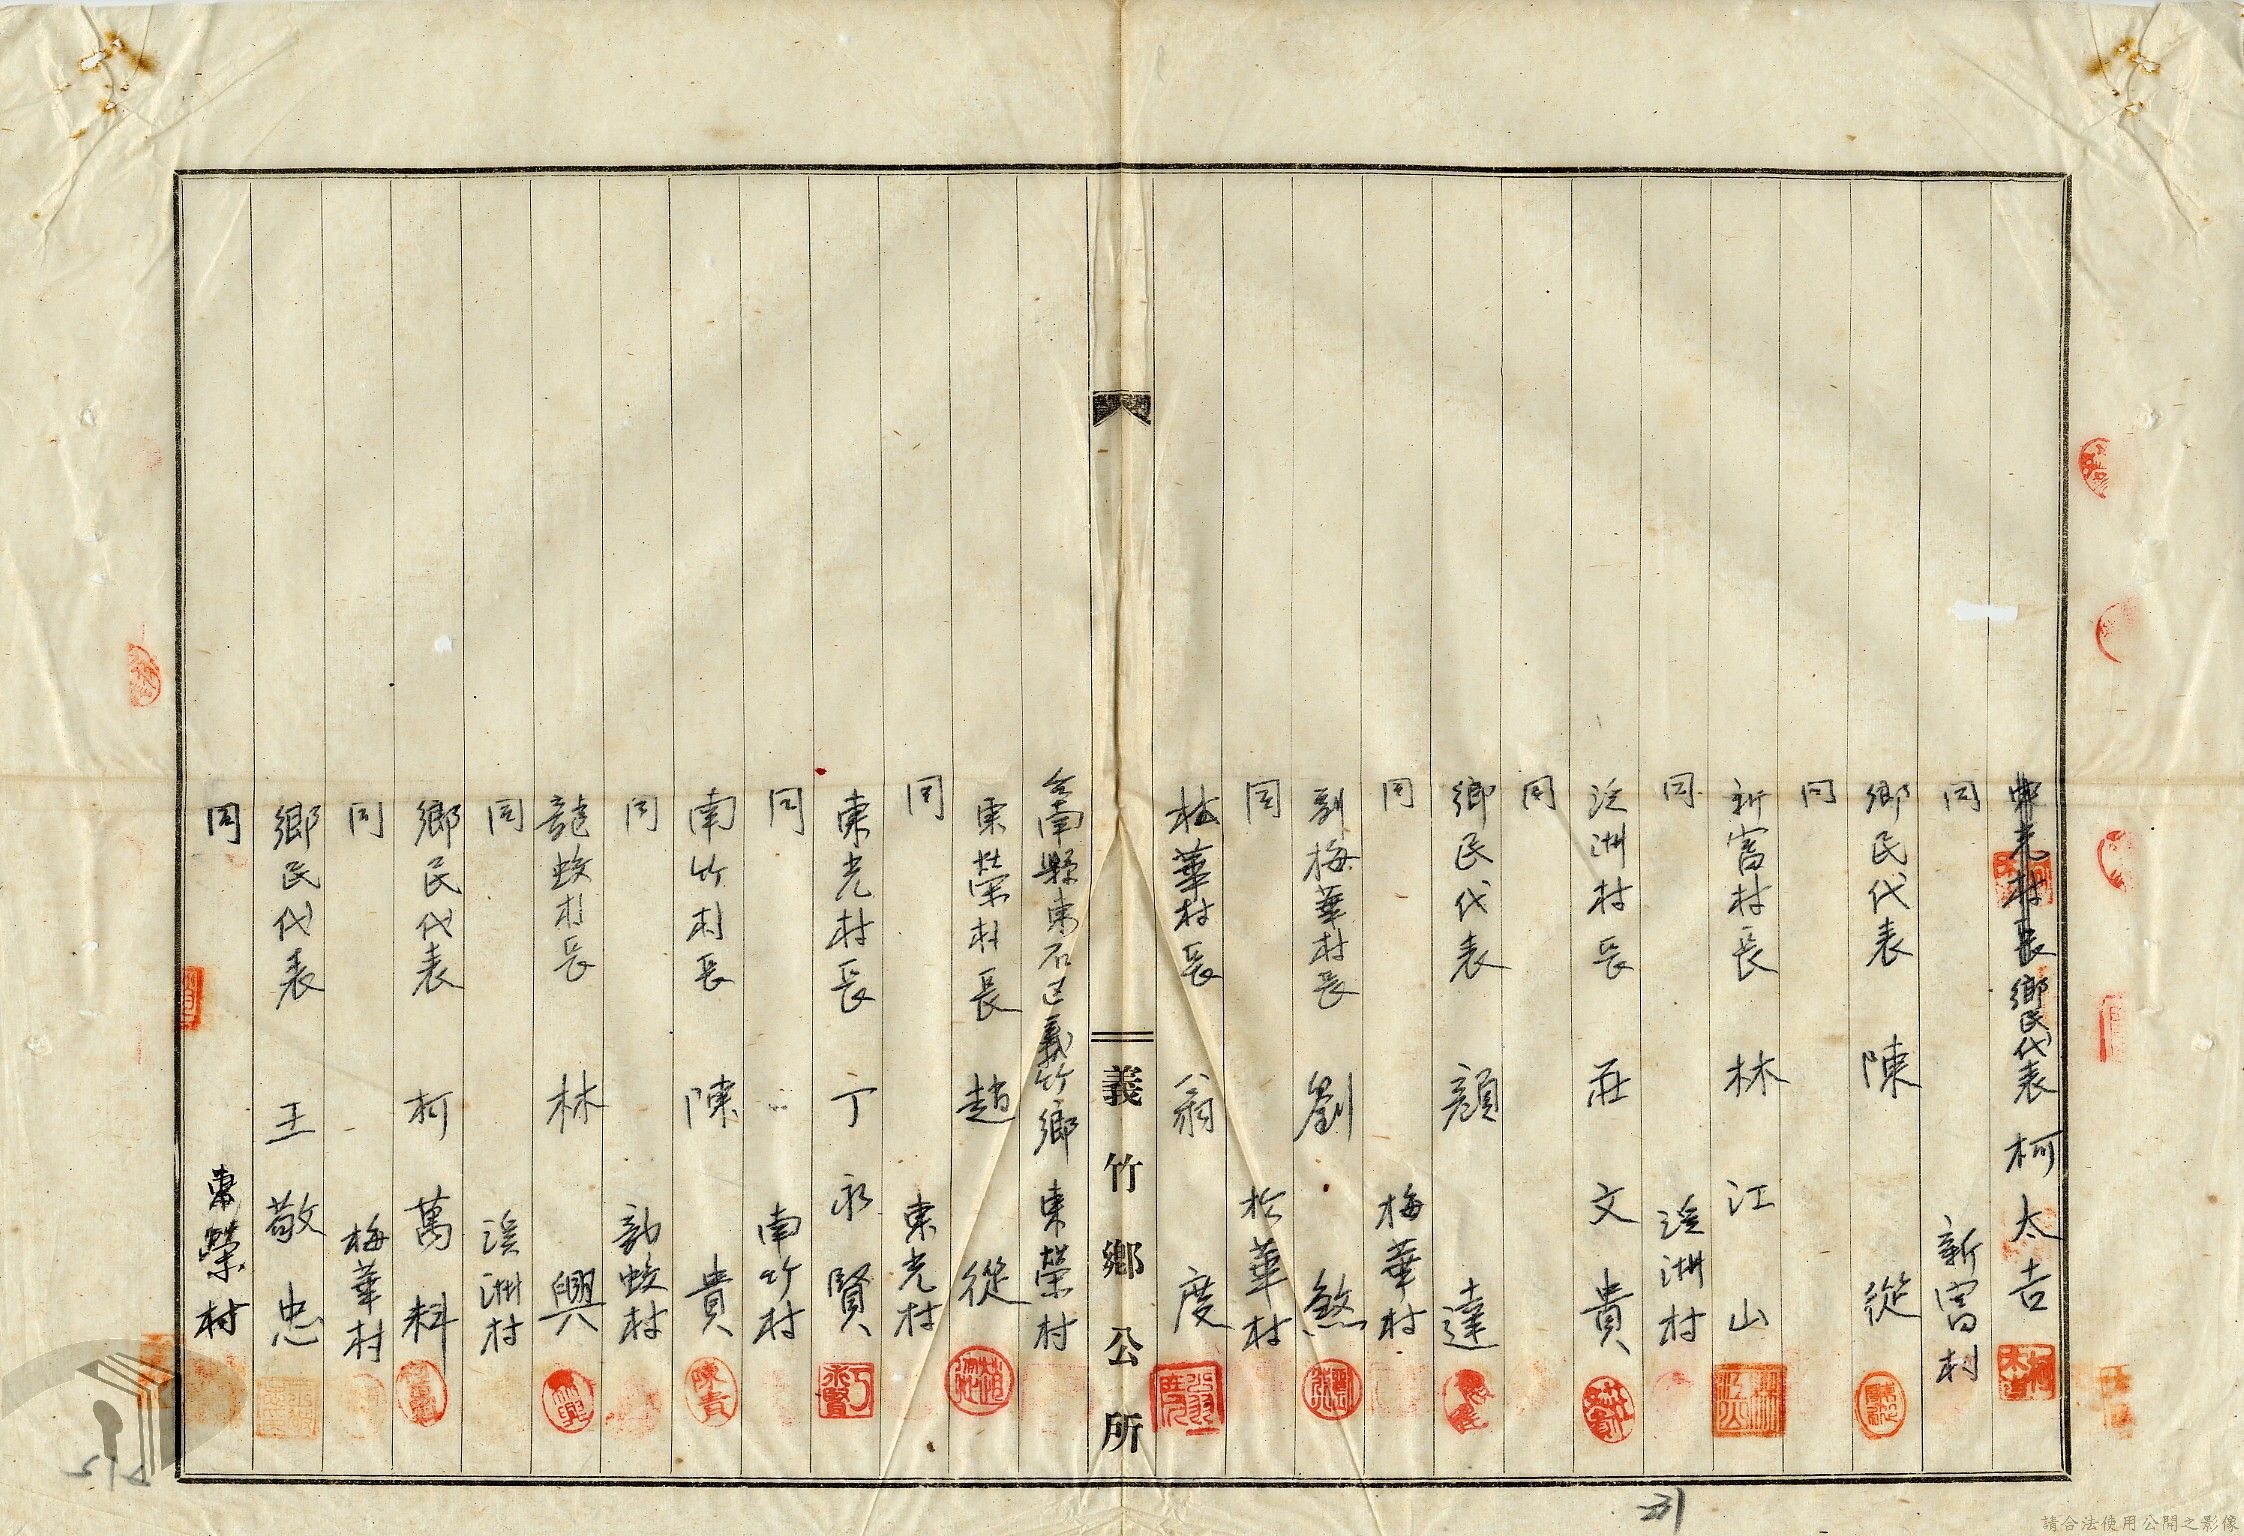 東光村長鄉民代表 柯太吉
同 新富村
鄉民代表 陳從
同
新富村長 林江山
同 溪洲村
溪洲村長 莊文貴
同
鄉民代表 顏達
同 梅華村
副梅華村長 劉煞
同 梅華村
梅華村長 翁度
義竹鄉公所
台南縣東石區義竹鄉東榮村
東榮村長 趙從
同 東光村
東光村長 丁永賢
同 南竹村
南竹村長 陳貴
同 龍蛟村
龍蛟村長 林興
同 溪洲村
鄉民代表 柯萬料
同 梅華村
鄉民代表 王敬忠
同 東榮村
陳貴
丁永賢
請合法使用公開之影像